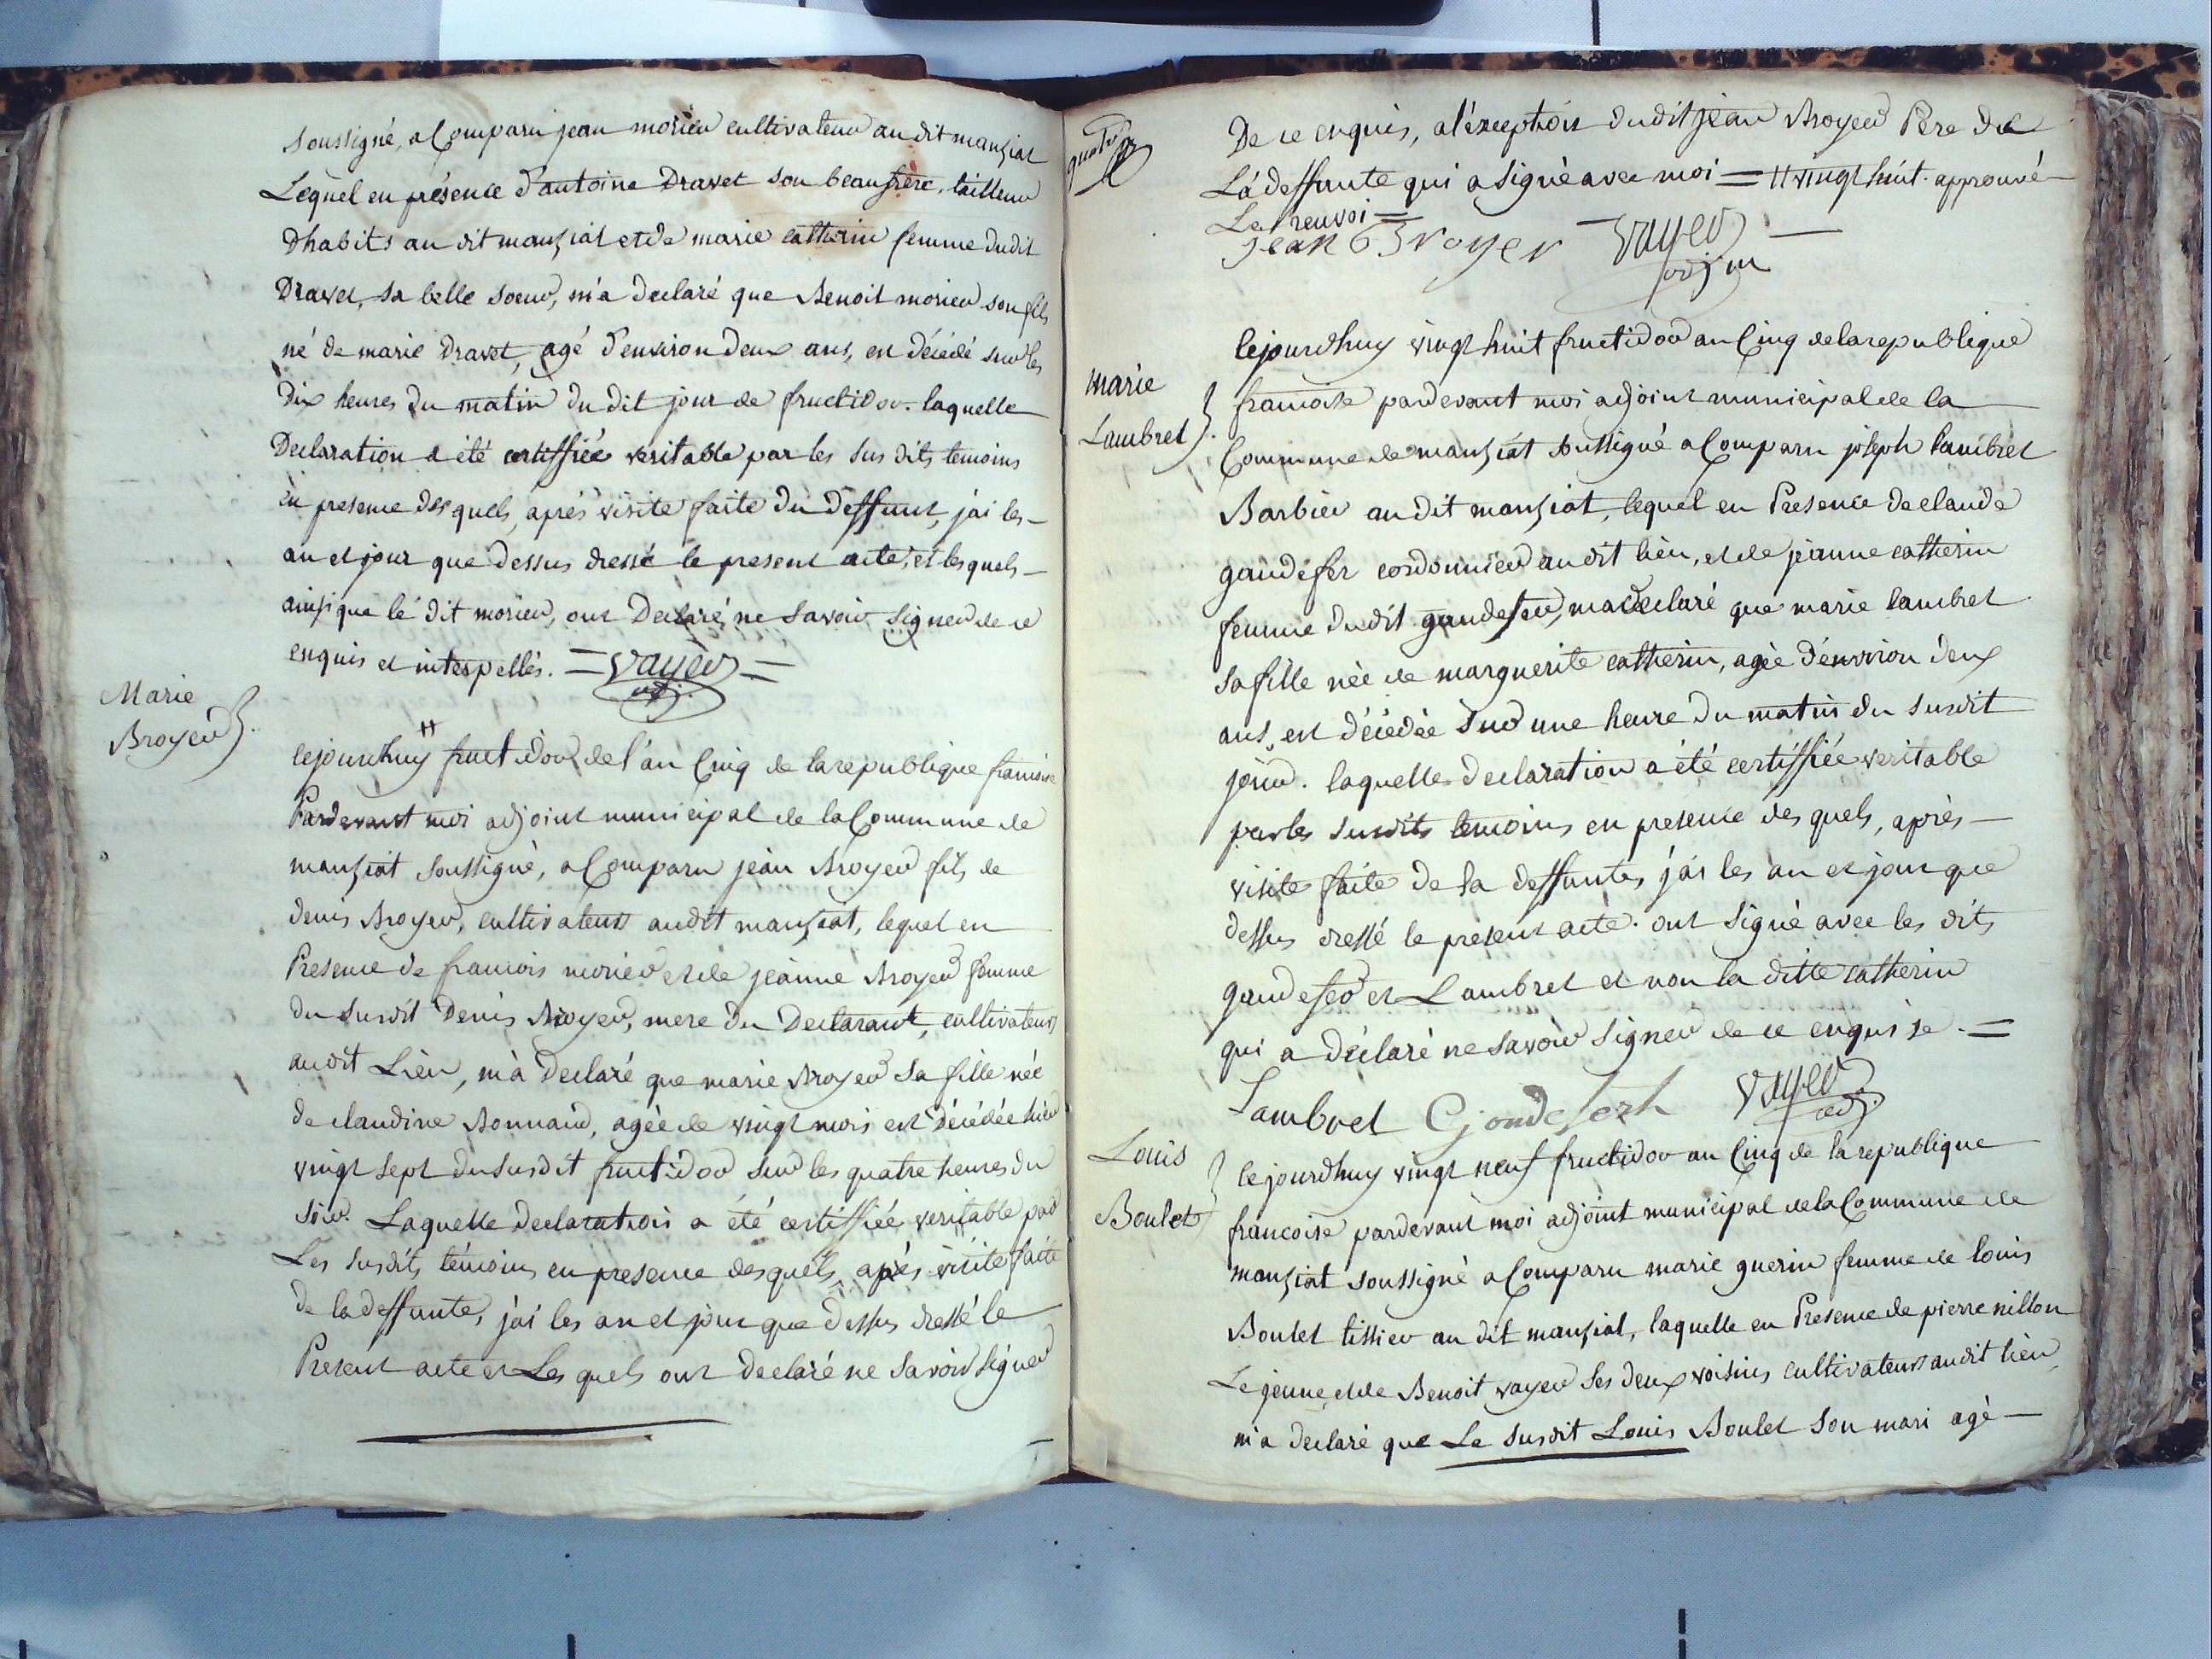 soussigné, a Comparu jean morier cultivateur au dit manziat
Lequel en présence d'antoine Dravet son beaufrère, tailleur
d'habits au dit manziat et de marie catherin femme dudit
Dravet, sa belle soeur, m'a declaré que Benoit morier son fils
né de marie Dravet, agé d'environ deux ans, est décédé sur les
dix heures du matin du dit jour de fructidor. laquelle
Declaration a été certiffiée veritable par les sus dits temoins
en presence des quels, après visite faite du deffunt, j'ai les
an et jour que dessus dressé le present acte, et les quels
ainsi que le dit morier, ont Declaré ne savoir signer de ce
enquis et interpellés. = vayer =
adj.
Marie
Broyer
cejourdhuy # fructidor de l'an Cinq de la republique francoise
Pardevant moi adjoint municipal de la Commune de
manziat soussigné, a Comparu jean Broyer fils de
denis Broyer, cultivateur audit manziat, lequel en
Presence de francois morier et de jeanne Broyer femme
du susdit Denis Broyer, mere du Declarant, cultivateurs
audit Lieu, m'a Declaré que marie Broyer sa fille née
de claudine Bonnaud, agée de vingt mois est décédée hier
vingt sept du susdit fructidor sur les quatre heures du
soir. Laquelle declaration a été certiffiée veritable par
Les susdits témoins en presence desquels, après visite faite
de la deffunte, j'ai les an et jour que dessus dressé le
Present acte et Les quels ont declaré ne savoir signer
De ce enquis, a l'exception dudit jean Broyer Pere de
La deffunte qui a signé avec moi = # vingt huit. approuvé
Le renvoi =
jean Broyer vayer
adj m
marie
Lambret
cejourdhuy vingt huit fructidor an Cinq de la republique
francoise pardevant moi adjoint municipal de la
Commune de manziat soussigné a Comparu joseph lambret
Barbier au dit manziat, lequel en Presence de claude
gandefer cordonnier au dit lieu, et de jeanne catherin
femme dudit gandefer, m'a declaré que marie lambret
sa fille née de marguerite catherin, agée d'environ deux
ans, est décédée sur une heure du matin du susdit
jour. laquelle declaration a été certiffiée veritable
par les susdits temoins en presence des quels, après
visite faite de la deffunte, j'ai les an et jour que
dessus dressé le present acte. ont signé avec les dits
gandefer et Lambret et non la ditte catherin
qui a déclaré ne savoir signer de ce enquise. =
Lambret C gondeferh vayer
adj
Louis
Boulet
cejourdhuy vingt neuf fructidor an Cinq de la republique
francoise pardevant moi adjoint municipal de la Commune de
manziat soussigné a Comparu marie guerin femme de louis
Boulet tissier au dit manziat, laquelle en Presence de pierre nillon
Le jeune, et de Benoit vayer ses deux voisins cultivateurs audit lieu,
m'a declaré que Le susdit Louis Boulet son mari agé